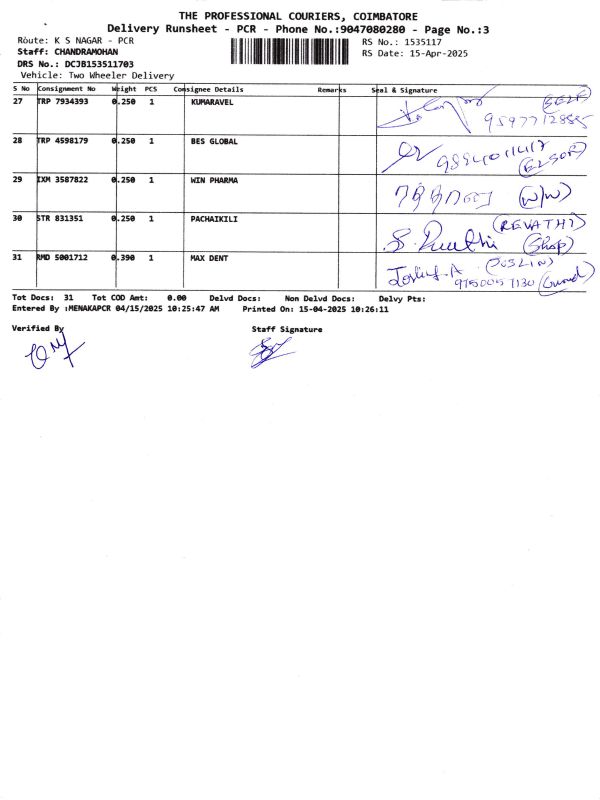 THE PROFESSIONAL COURIERS, COIMBATORE
Delivery Runsheet - PCR - Phone No.:9047080280 - Page No.:3
Route: K S NAGAR - PCR
Staff: CHANDRAMOHAN
DRS No.: DCJB153511703
Vehicle: Two Wheeler Delivery
RS No.: 1535117
RS Date: 15-Apr-2025
S No Consignment No Weight PCS Consignee Details Remarks Seal & Signature
27 TRP 7934393 0.250 1 KUMARAVEL (SELF)
28 TRP 4598179 0.250 1 BES GLOBAL
29 IXM 3587822 0.250 1 WIN PHARMA (W/W)
30 STR 831351 0.250 1 PACHAIKILI (REVATHI)
(Shop)
31 RMD 5001712 0.390 1 MAX DENT (JOSLIN)
9750057130
Tot Docs: 31 Tot COD Amt: 0.00 Delvd Docs: Non Delvd Docs: Delvy Pts:
Entered By :MENAKAPCR 04/15/2025 10:25:47 AM Printed On: 15-04-2025 10:26:11
Verified By Staff Signature